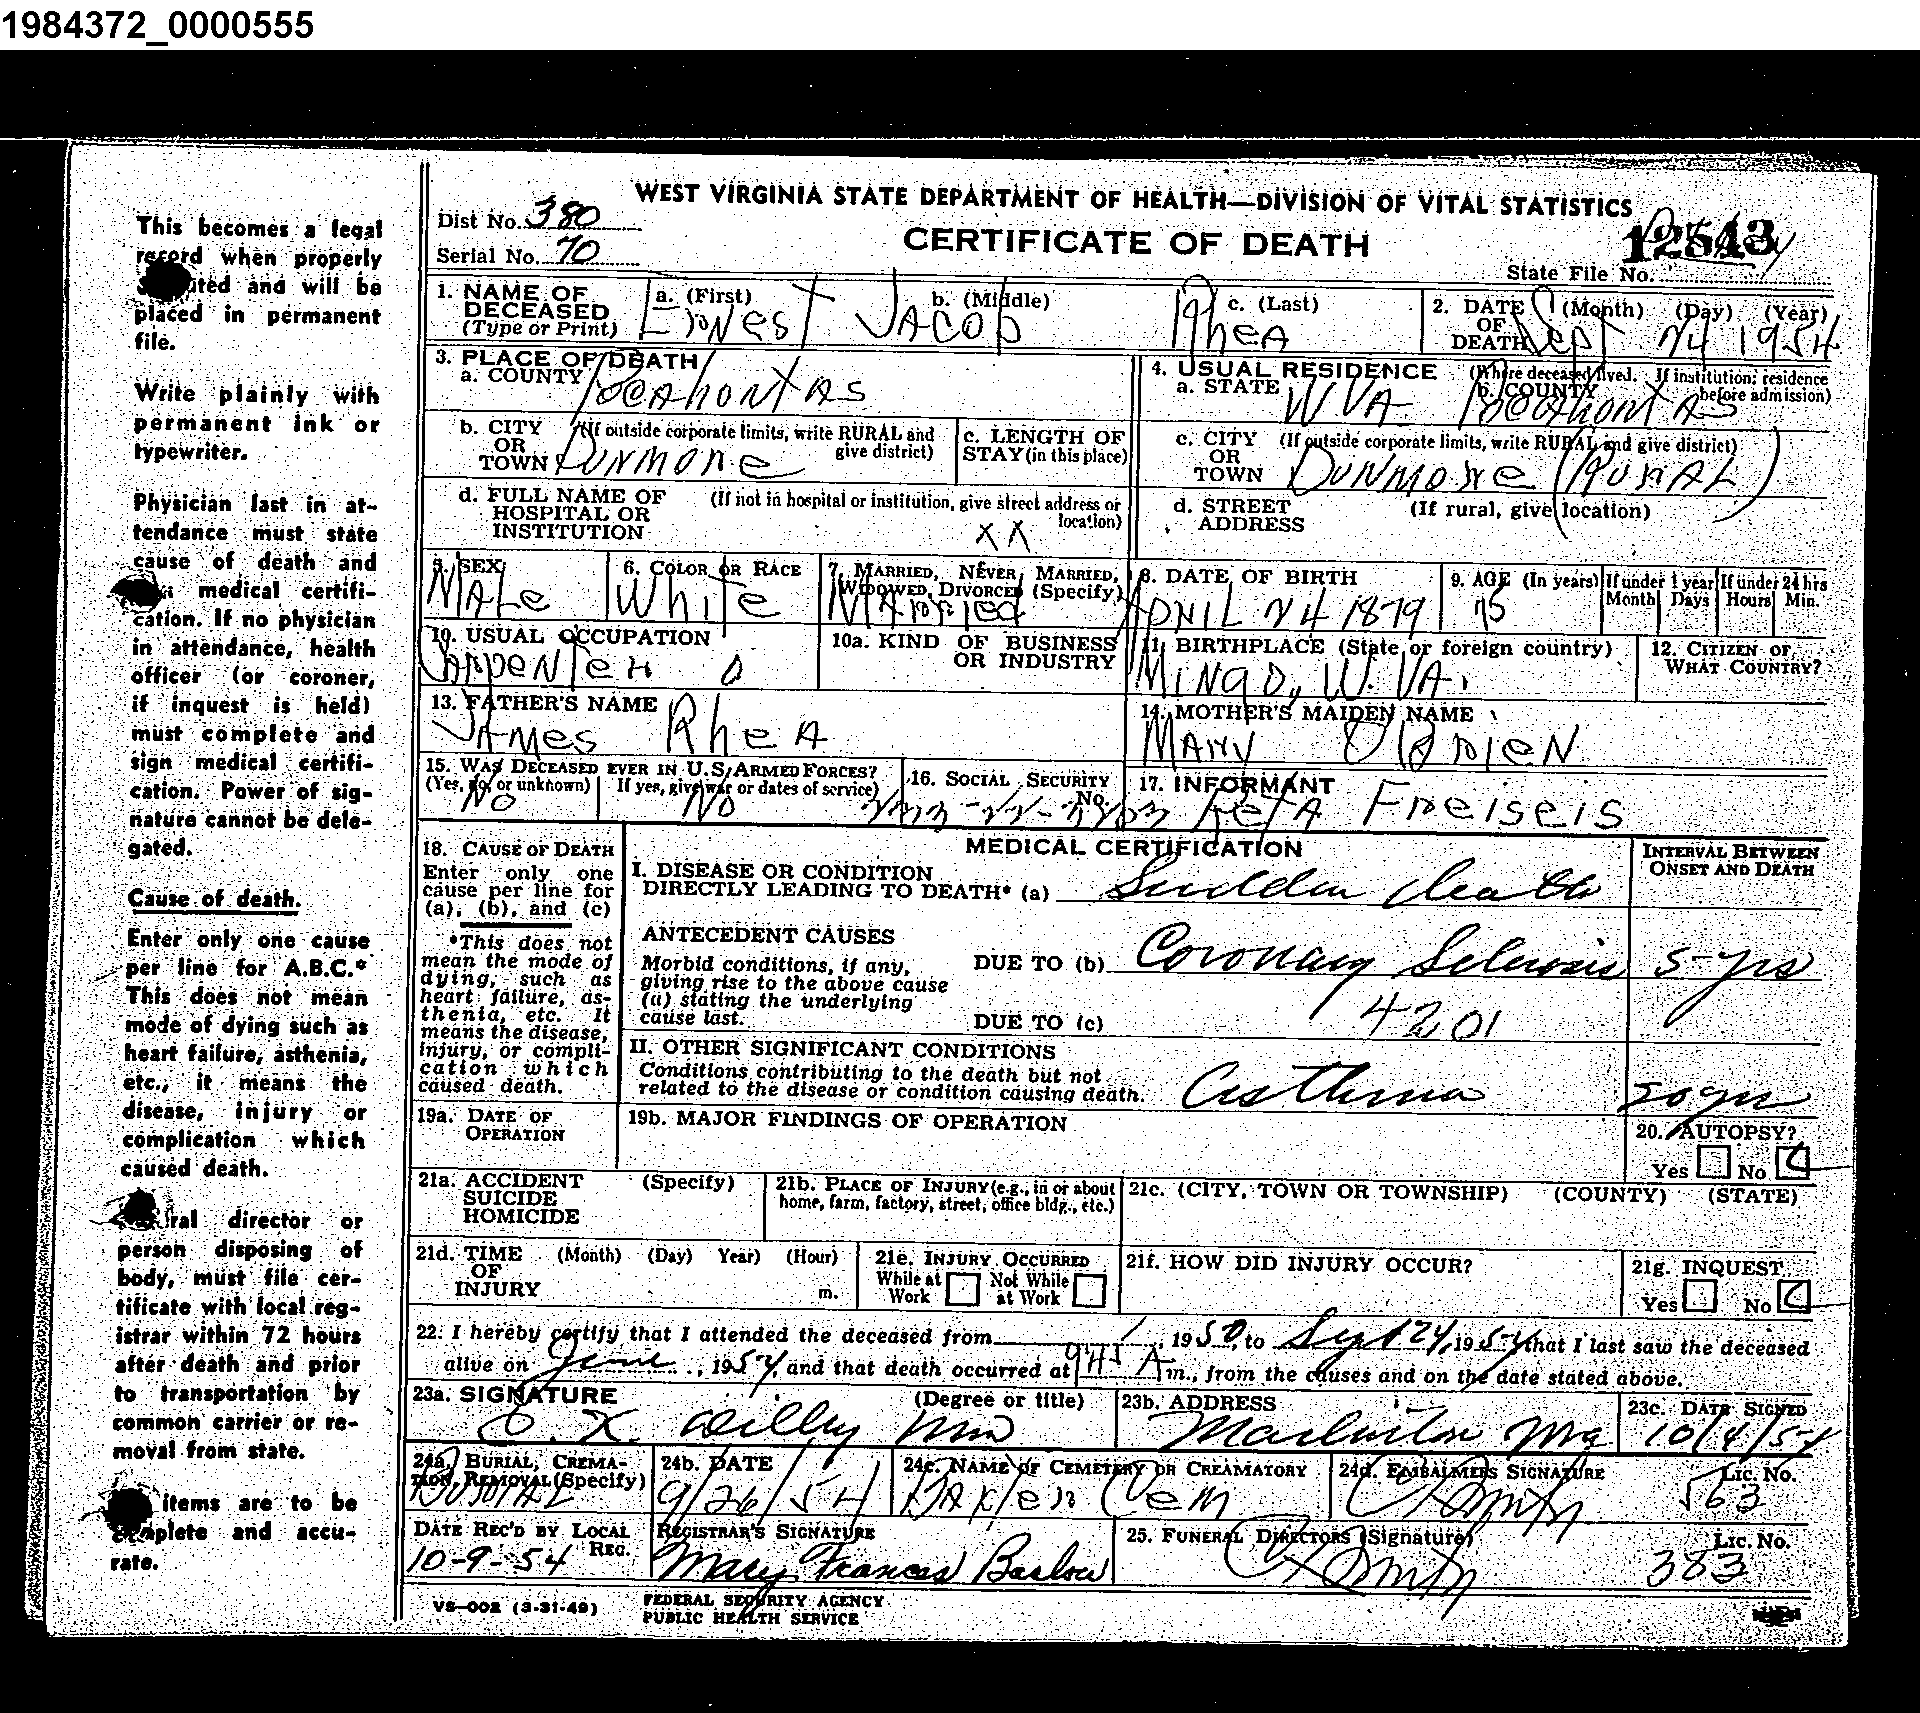 1984372_0000555
WEST VIRGINIA STATE DEPARTMENT OF HEALTH—DIVISION OF VITAL STATISTICS
Dist No. 380
Serial No. 70
CERTIFICATE OF DEATH
State File No.
This becomes a legal
record when properly
and will be
placed in permanent
file.
Write plainly with
permanent ink or
typewriter.
Physician last in at-
tendance must state
cause of death and
medical certifi-
cation. If no physician
in attendance, health
officer (or coroner,
if inquest is held)
must complete and
sign medical certifi-
cation. Power of sig-
nature cannot be dele-
gated.
Cause of death.
Enter only one cause
per line for A.B.C.*
This does not mean
mode of dying such as
heart failure, asthenia,
etc., it means the
disease, injury or
complication which
caused death.
director or
person disposing of
body, must file cer-
tificate with local reg-
istrar within 72 hours
after death and prior
to transportation by
common carrier or re-
moval from state.
items are to be
complete and accu-
rate.
1. NAME OF DECEASED (Type or Print) a. (First) Ernest b. (Middle) Jacob c. (Last) Rhea
2. DATE OF DEATH (Month) (Day) (Year) Sept 24 1954
3. PLACE OF DEATH
a. COUNTY Pocahontas
4. USUAL RESIDENCE (Where deceased lived. If institution: residence before admission)
a. STATE W VA b. COUNTY Pocahontas
b. CITY OR TOWN (If outside corporate limits, write RURAL and give district) Dunmore
c. LENGTH OF STAY (in this place)
c. CITY OR TOWN (If outside corporate limits, write RURAL and give district) Dunmore (Rural)
d. FULL NAME OF HOSPITAL OR INSTITUTION (If not in hospital or institution, give street address or location) XX
d. STREET ADDRESS (If rural, give location)
5. SEX Male
6. COLOR OR RACE White
7. MARRIED, NEVER MARRIED, WIDOWED, DIVORCED (Specify) Married
8. DATE OF BIRTH April 24 1879
9. AGE (In years) 75 If under 1 year Month Days If under 24 hrs Hours Min.
10. USUAL OCCUPATION Carpenter
10a. KIND OF BUSINESS OR INDUSTRY
11. BIRTHPLACE (State or foreign country) Mingo, W. VA.
12. CITIZEN OF WHAT COUNTRY?
13. FATHER'S NAME James Rhea
14. MOTHER'S MAIDEN NAME Mary O'Brien
15. WAS DECEASED EVER IN U.S. ARMED FORCES? (Yes, no, or unknown) No If yes, give war or dates of service) No
16. SOCIAL SECURITY No.
17. INFORMANT Reta Freiseis
18. CAUSE OF DEATH
Enter only one
cause per line for
(a), (b), and (c)
*This does not
mean the mode of
dying, such as
heart failure, as-
thenia, etc. It
means the disease,
injury, or compli-
cation which
caused death.
MEDICAL CERTIFICATION
INTERVAL BETWEEN ONSET AND DEATH
I. DISEASE OR CONDITION
DIRECTLY LEADING TO DEATH* (a) Sudden death
ANTECEDENT CAUSES
Morbid conditions, if any,
giving rise to the above cause
(a) stating the underlying
cause last.
DUE TO (b) Coronary Sclerosis 5-yrs
DUE TO (c) 4201
II. OTHER SIGNIFICANT CONDITIONS
Conditions contributing to the death but not
related to the disease or condition causing death. Asthma
19a. DATE OF OPERATION
19b. MAJOR FINDINGS OF OPERATION
20. AUTOPSY?
Yes No
21a. ACCIDENT SUICIDE HOMICIDE (Specify)
21b. PLACE OF INJURY (e.g., in or about home, farm, factory, street, office bldg., etc.)
21c. (CITY, TOWN OR TOWNSHIP) (COUNTY) (STATE)
21d. TIME OF INJURY (Month) (Day) Year) (Hour) m.
21e. INJURY OCCURRED While at Work Not While at Work
21f. HOW DID INJURY OCCUR?
21g. INQUEST
Yes No
22. I hereby certify that I attended the deceased from 1, 1950, to Sept 24, 1954, that I last saw the deceased
alive on June, 1954, and that death occurred at 945 A m., from the causes and on the date stated above.
23a. SIGNATURE (Degree or title)
23b. ADDRESS
23c. DATE SIGNED 10/4/54
24a. BURIAL, CREMATION, REMOVAL (Specify) Burial
24b. DATE 9/26/54
24c. NAME OF CEMETERY OR CREAMATORY Baxter Cem
24d. EMBALMERS SIGNATURE Lic. No. 563
DATE REC'D BY LOCAL REG. 10-9-54
REGISTRAR'S SIGNATURE Mary Frances Barlow
25. FUNERAL DIRECTORS (Signature) Lic. No. 383
VS-002 (3-31-49)
FEDERAL SECURITY AGENCY
PUBLIC HEALTH SERVICE